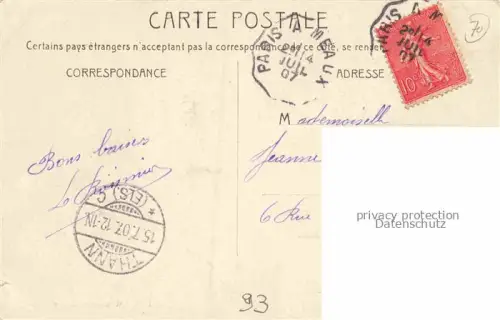 CARTE POSTALE
Certains pays étrangers n'acceptant pas la correspondance de ce côté, se
CORRESPONDANCE
ADRESSE
PARIS A MEAUX
2E/14
JUIL
07
PARIS A M
14
JUIL
07
10
70
Mademoiselle
Jeanne
6 Rue
Bons baisers
THANN
15.7.07.12-1N.
* (ELS.) c
privacy protection
Datenschutz
93